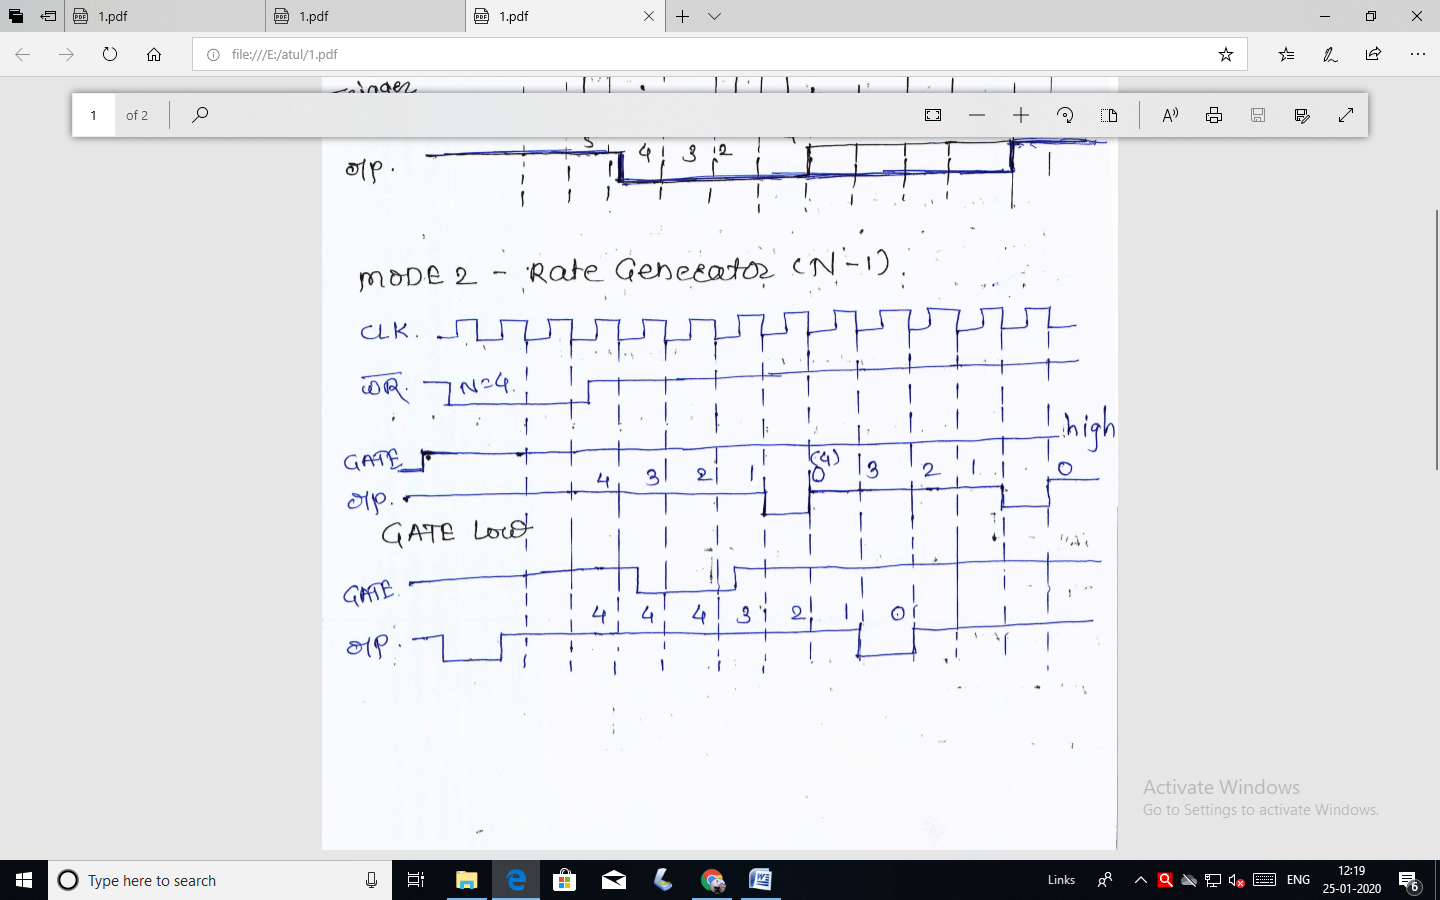 1.pdf
1.pdf
1.pdf
file:///E:/atul/1.pdf
Trigger
1 of 2
O/P.
4 3 2
MODE 2 - Rate Generator (N-1).
CLK.
WR. N=4.
high
GATE
(4)
4 3 2 1 0 3 2 1 0
O/P.
GATE Low
GATE.
4 4 4 3 2 1 0
O/P.
Activate Windows
Go to Settings to activate Windows.
Type here to search
Links
ENG
12:19
25-01-2020
6